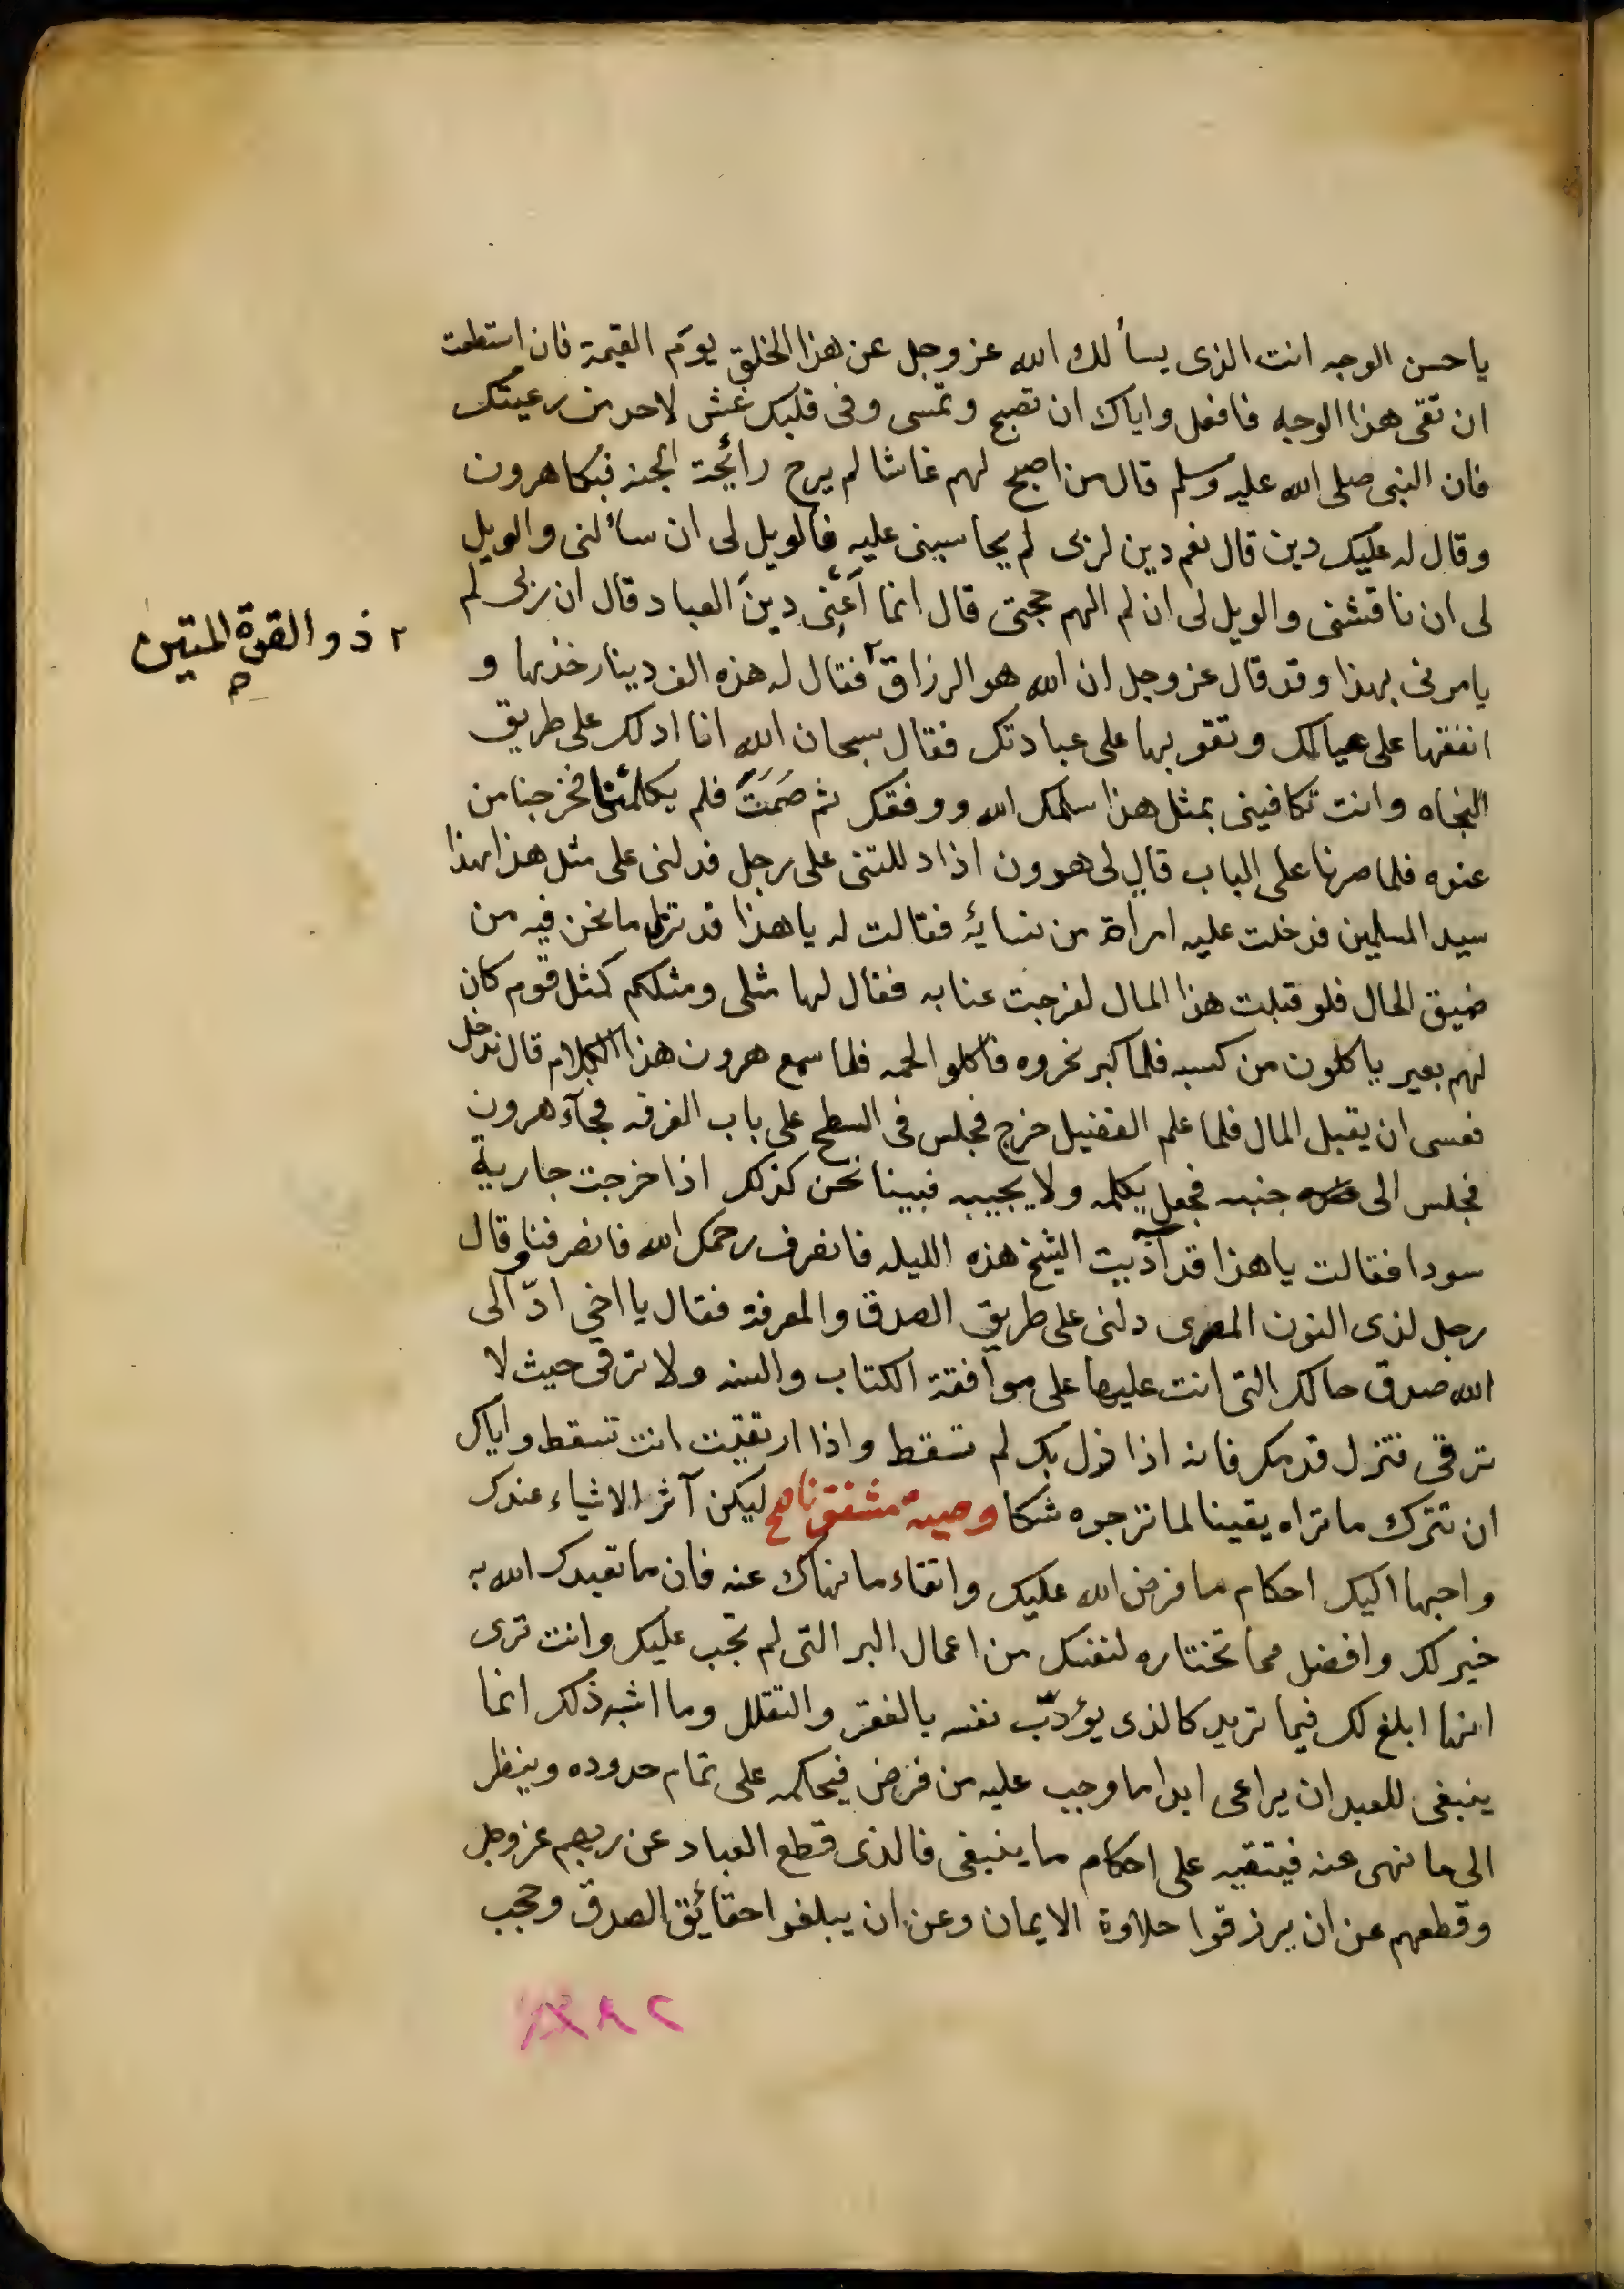 يا حسن الوجه انت الذى يسألك الله عز وجل عن هذا الخلق يوم القيمة فان استطعت
ان تقى هذا الوجه فافعل واياك ان تصبح وتمسى وفى قلبك غش لاحد من رعيتك
فان النبى صلى الله عليه وسلم قال من اصبح لهم غاشا لم يرح رائحة الجنة فبكا هرون
وقال له عليك دين قال نعم دين لربى لم يحاسبنى عليه فالويل لى ان سألنى والويل
لى ان ناقشنى والويل لى ان لم الهم حجتى قال انما أعنى دين العباد قال ان ربى لم
يامرنى بهذا وقد قال عز وجل ان الله هو الرزاق ٢ فقال له هذه الف دينار خذها و
٢ ذو القوة المتين صح
انفقها على عيالك وتقو بها على عبادتك فقال سبحان الله انا ادلك على طريق
النجاه وانت تكافينى بمثل هذا سلمك الله ووفقك ثم صَمَتَ فلم يكلمنا فخرجنا من
عنده فلما صرنا على الباب قال لى هرون اذا دللتنى على رجل فدلنى على مثل هذا هذا
سيد المسلمين فدخلت عليه امراة من نسائه فقالت له يا هذا قد ترى ما نحن فيه من
ضيق الحال فلو قبلت هذا المال لفرجت عنا به فقال لها مثلى ومثلكم كمثل قوم كان
لهم بعير ياكلون من كسبه فلما كبر نحروه فاكلوا لحمه فلما سمع هرون هذا الكلام قال ندخل
فعسى ان يقبل المال فلما علم الفضيل خرج فجلس فى السطح على باب الغرفه فجآء هرون
فجلس الى جنبه فجعل يكلمه ولا يجيبه فبينا نحن كذلك اذا خرجت جارية
سودا فقالت يا هذا قد آذيت الشيخ هذه الليله فانصرف رحمك الله فانصرفنا وقال
رجل لذى النون المصرى دلنى على طريق الصدق والمعرفة فقال يا اخي ادّ الى
الله صدق حالك التى انت عليها على موافقة الكتاب والسنه ولا ترقى حيث لا
ترقى فتزل قدمك فانه اذا زل بك لم تسقط واذا ارتقيت انت تسقط واياك
ان تترك ما تراه يقينا لما ترجوه شكا وصية مشفق ناصح ليكن آثر الاشياء عندك
واحبها اليك احكام ما فرض الله عليك واتقاء ما نهاك عنه فان ما تعبدك الله به
خير لك وافضل مما تختاره لنفسك من اعمال البر التى لم تجب عليك وانت ترى
انها ابلغ لك فيما تريد كالذى يؤدّب نفسه بالفقر والتقلل وما اشبه ذلك انما
ينبغى للعبد ان يراعى ابدا ما وجب عليه من فرض فيحكمه على تمام حدوده وينظر
الى ما نهى عنه فيتقيه على احكام ما ينبغى فالذى قطع العباد عن ربهم عز وجل
وقطعهم عن ان يرزقوا حلاوة الايمان وعن ان يبلغوا حقائق الصدق وحجب